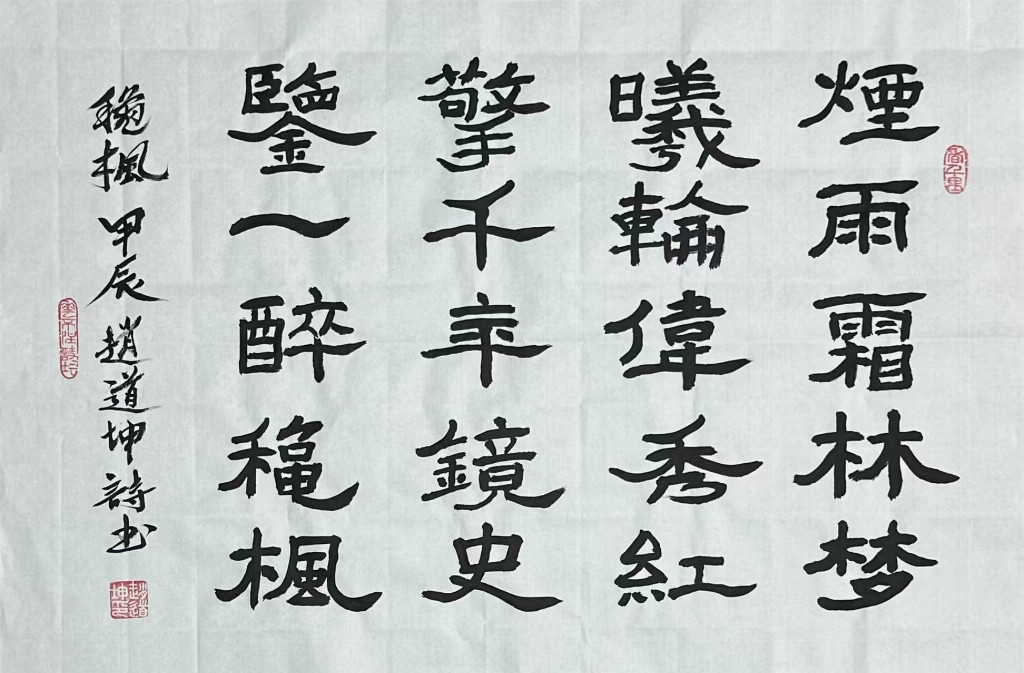 煙雨霜林梦
曦輪偉秀紅
擎千年鏡史
鑒一醉穐楓
穐楓 甲辰 趙道坤詩书
趙道坤印